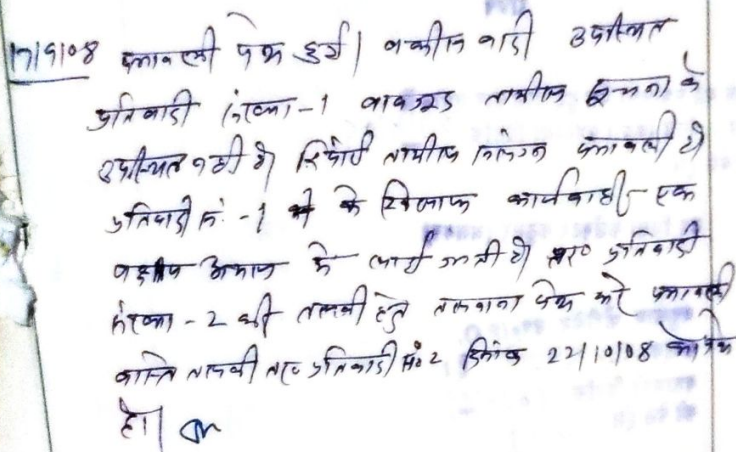 17/9/08 पत्रावली पेश हुई। वकील वादी उपस्थित
प्रतिवादी संख्या-1 बावजूद तामील सूचना के
उपस्थित नही है। रिपोर्ट तामील संलग्न पत्रावली है।
प्रतिवादी सं. -1 के खिलाफ कार्यवाही एक
पक्षीय अमल मे लाई जाती है। प्रतिवादी
संख्या - 2 की तलबी हेतु तलवाना पेश करे पत्रावली
वास्ते तलबी प्रतिवादी सं० 2 दिनांक 22/10/08 को पेश
हो।